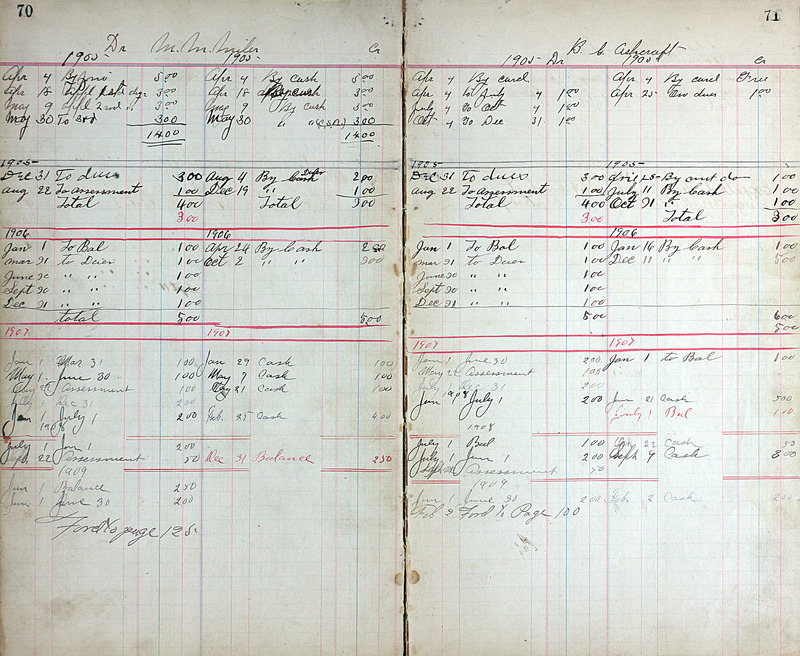 70
Dr M. M. Miler Cr
1905 1905
Apr 4 500 Apr 4 By cash 500
Apr 18 300 Apr 18 By cash 300
May 9 300 May 9 By cash 300
May 30 To 300 May 30 " " 300
1400 1400
1905
Dec 31 To dues 300 Aug 4 By Cash Dues 200
Aug 22 To assessment 100 Dec 19 " 100
Total 400 Total 300
300
1906 1906
Jan 1 To Bal 100 Apr 24 By Cash 200
Mar 31 to Dues 100 Oct 2 " " 300
June 30 " " 100
Sept 30 " " 100
Dec 31 " " 100
total 500 500
1907 1907
Jan 1 Mar 31 100 Jan 29 Cash 100
May 1 June 30 100 May 7 Cash 100
Assessment 100 21 Cash 100
Dec 31 200
Jan 1 July 1 200 Feb. 25 Cash 400
1908
July 1 Jan 1 200
Sept. 22 Assessment 50 Dec 31 Balance 250
1909
Jan 1 Balance 250
Jan 1 June 30 200
Ford to page 125
71
B. C. Ashcraft
1905 Dr 1905 Cr
Apr 4 By card Apr 4 By card Free
Apr 4 to July 4 1.00 Apr 25 dues 1.00
July 4 to Oct 4 1.00
Oct 4 to Dec 31 1.00
1905 1905
Dec 31 To dues 300 April 25 By 100
Aug 22 To assessment 100 July 11 By Cash 100
400 Oct 31 " 100
300 Total 300
1906
Jan 1 To Bal 100 Jan 16 By Cash 100
Mar 31 to Dues 100 Dec 11 " " 500
June 30 " " 100
Sept 30 " " 100
Dec 31 " " 100
500 600
500
1907 1907
Jan 1 June 30 200 Jan 1 to Bal 100
May 2 Assessment 100
July 1 Dec 31 200
Jan 1908 July 1 200 Jun 21 Cash 500
July 1 Bal 100
1908
July 1 Bal 100 Jan 22 Cash 50
July 1 Jan 1 200 Sept 9 Cash 300
Assessment 50
1909
Jan 1 June 30 200 Feb. 2 Cash
Feb 2 Ford to Page 100